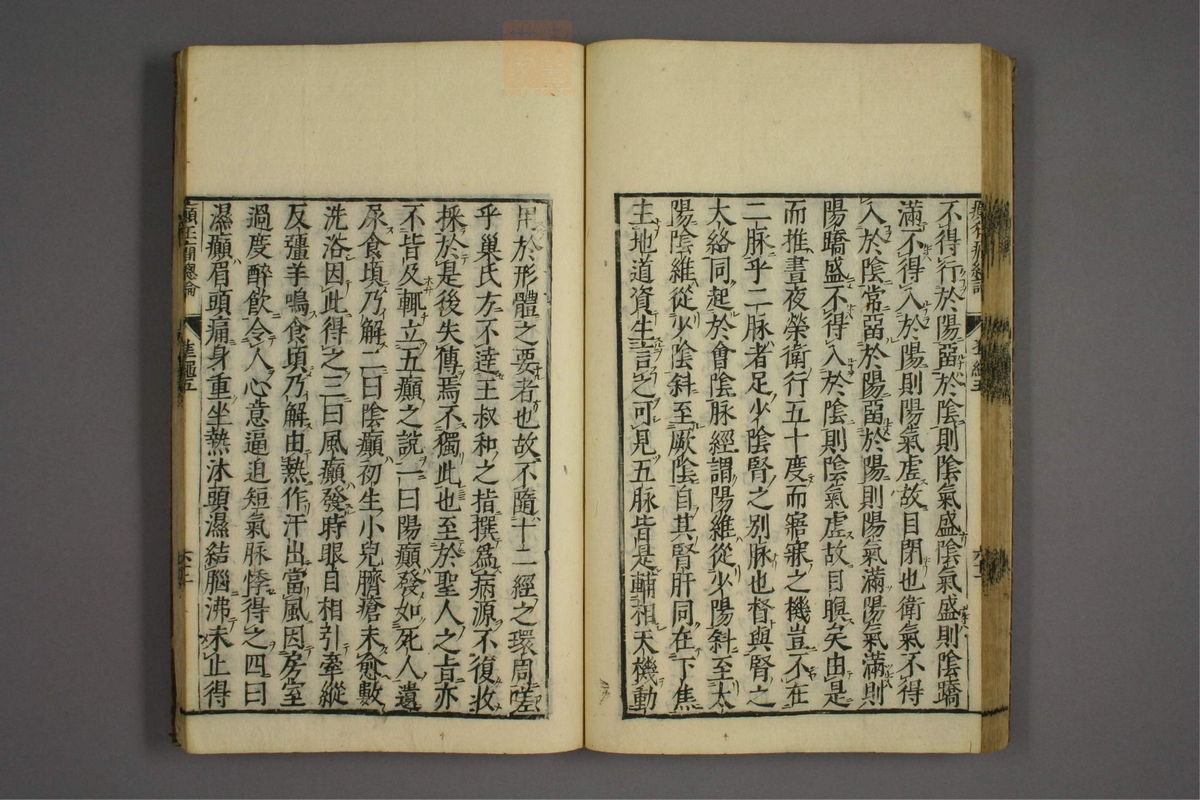 不得行於陽畱於陰則陰氣盛陰氣盛則陰蹻
滿不得入於陽則陽氣虛故目閉也衛氣不得
入於陰常畱於陽畱於陽則陽氣滿陽氣滿則
陽蹻盛不得入於陰則陰氣虛故目瞑矣由是
而推晝夜榮衛行五十度而寤寐之機豈不在
二脉乎二脉者足少陰腎之別脉也督與腎之
大絡同起於會陰脉經謂陽維從少陽斜至太
陽陰維從少陰斜至厥陰自其腎肝同在下焦
主地道資生言之可見五脉皆是輔相天機動
用於形體之要者也故不隨十二經之環周嗟
乎巢氏方不逹王叔和之指撰爲病源不復收
採於是後失傳焉不獨此也至於聖人之旨亦
不皆及輒立五癲之說一曰陽癲發如死人遺
尿食頃乃解二曰陰癲初生小兒臍瘡未愈數
洗浴因此得之三曰風癲發時眼目相引牽縱
反彊羊鳴食頃乃解由熱作汗出當風因房室
過度醉飲令人心意逼迫短氣脉悸得之四曰
濕癲眉頭痛身重坐熱沐頭濕結腦沸未止得
癲狂癇總論 準繩五 六十二